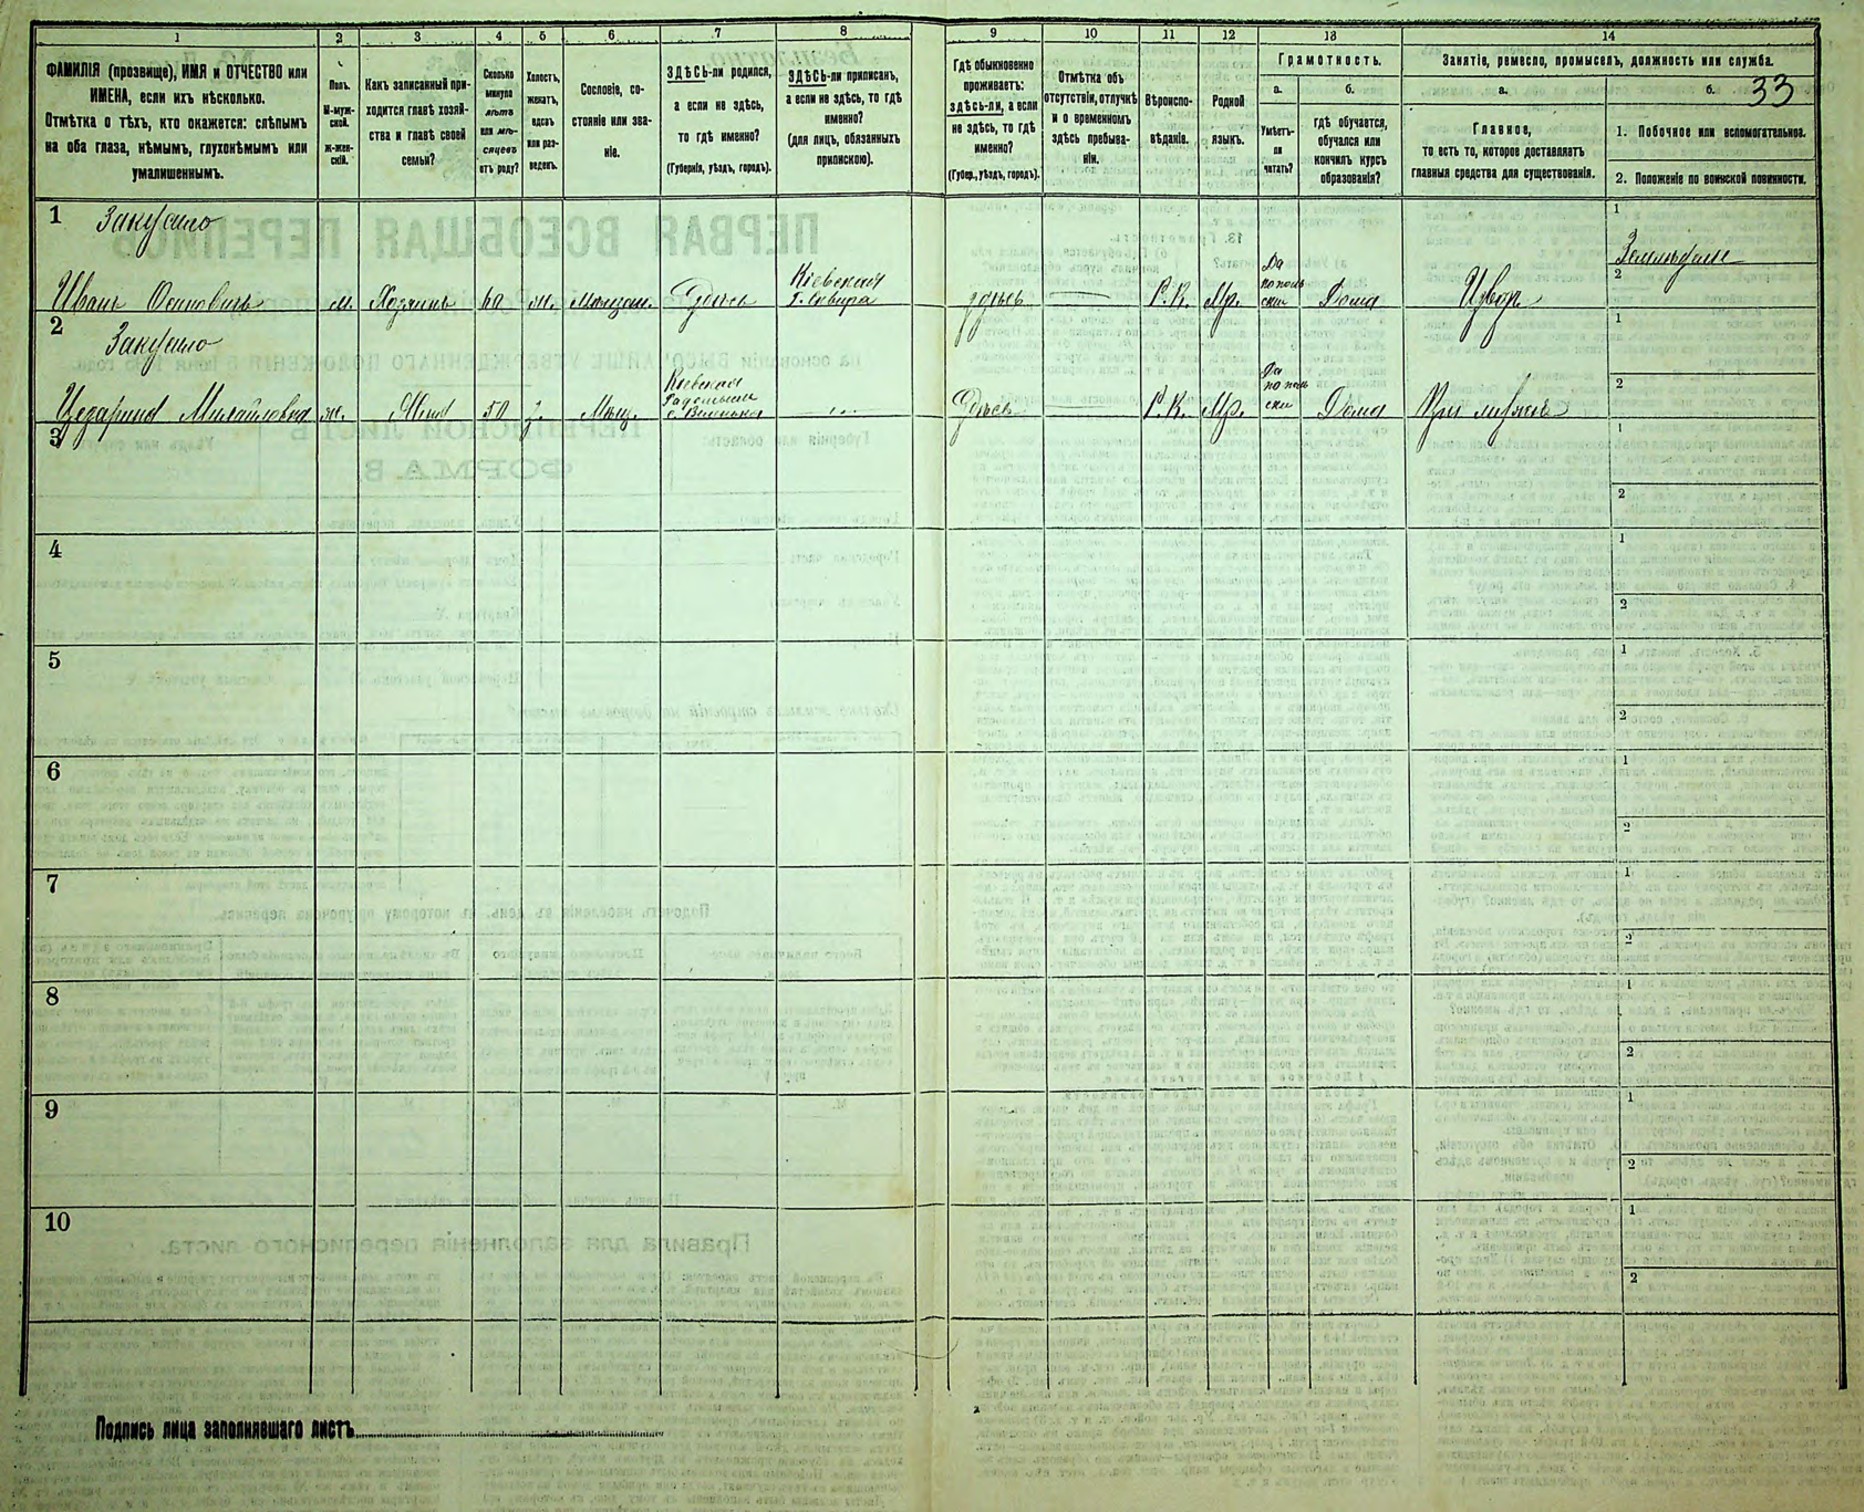 1 2 3 4 5 6 7 8 9 10 11 12 13 14
33
ФАМИЛІЯ (прозвище), ИМЯ и ОТЧЕСТВО или
ИМЕНА, если ихъ нѣсколько.
Отмѣтка о тѣхъ, кто окажется: слѣпымъ
на оба глаза, нѣмымъ, глухонѣмымъ или
умалишеннымъ.
Полъ.
М-муж-
ской.
Ж-жен-
скій.
Какъ записанный при-
ходится главѣ хозяй-
ства и главѣ своей
семьи?
Сколько
минуло
лѣтъ
или мѣ-
сяцевъ
отъ роду?
Холостъ,
женатъ,
вдовъ
или раз-
веденъ.
Сословіе, со-
стояніе или зва-
ніе.
ЗДѢСЬ-ли родился,
а если не здѣсь,
то гдѣ именно?
(Губернія, уѣздъ, городъ).
ЗДѢСЬ-ли приписанъ,
а если не здѣсь, то гдѣ
именно?
(для лицъ, обязанныхъ
припискою).
Гдѣ обыкновенно
проживаетъ:
здѣсь-ли, а если
не здѣсь, то гдѣ
именно?
(Губер., уѣздъ, городъ).
Отмѣтка объ
отсутствіи, отлучкѣ
и о временномъ
здѣсь пребыва-
ніи.
Вѣроиспо-
вѣданіе.
Родной
языкъ.
Грамотность.
а.
Умѣетъ-
ли
читать?
б.
гдѣ обучается,
обучался или
кончилъ курсъ
образованія?
Занятіе, ремесло, промыселъ, должность или служба.
а.
Главное,
то есть то, которое доставляетъ
главныя средства для существованія.
б.
1. Побочное или вспомогательное.
2. Положеніе по воинской повинности.
1 Закусило
Иванъ Осиповичъ м. Хозяинъ 60 ж. Мѣщан. Здѣсь
Кіевская
г. Сквира
здѣсь Р.К.
Да
по поль
ски
Дома Извозъ
1
2
2 Закусило
Цезарина Михайловна ж. Жена 50 з. Мѣщ.
Кіевская
Здѣсь Р.К.
Да
по поль
ски
Дома При мужѣ
1
2
3
1
2
4
1
2
5
1
2
6
1
2
7
1
2
8
1
2
9
1
2
10
1
2
Подпись лица заполнявшаго листъ